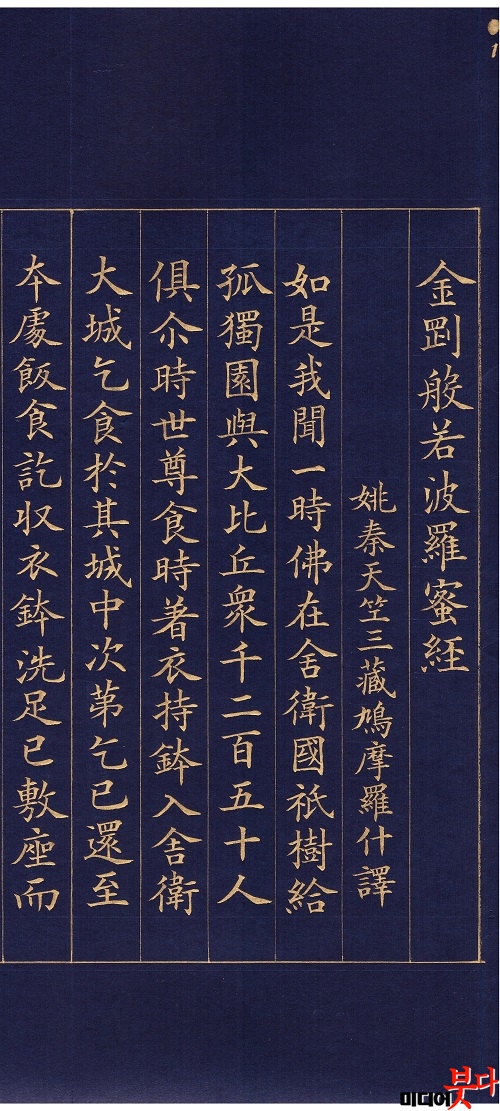 1
金剛般若波羅蜜経
姚秦天竺三藏鳩摩羅什譯
如是我聞一時佛在舍衛國祇樹給
孤獨園與大比丘衆千二百五十人
俱尒時世尊食時著衣持鉢入舍衛
大城乞食於其城中次苐乞已還至
夲處飯食訖収衣鉢洗足已敷座而
미디어붓다